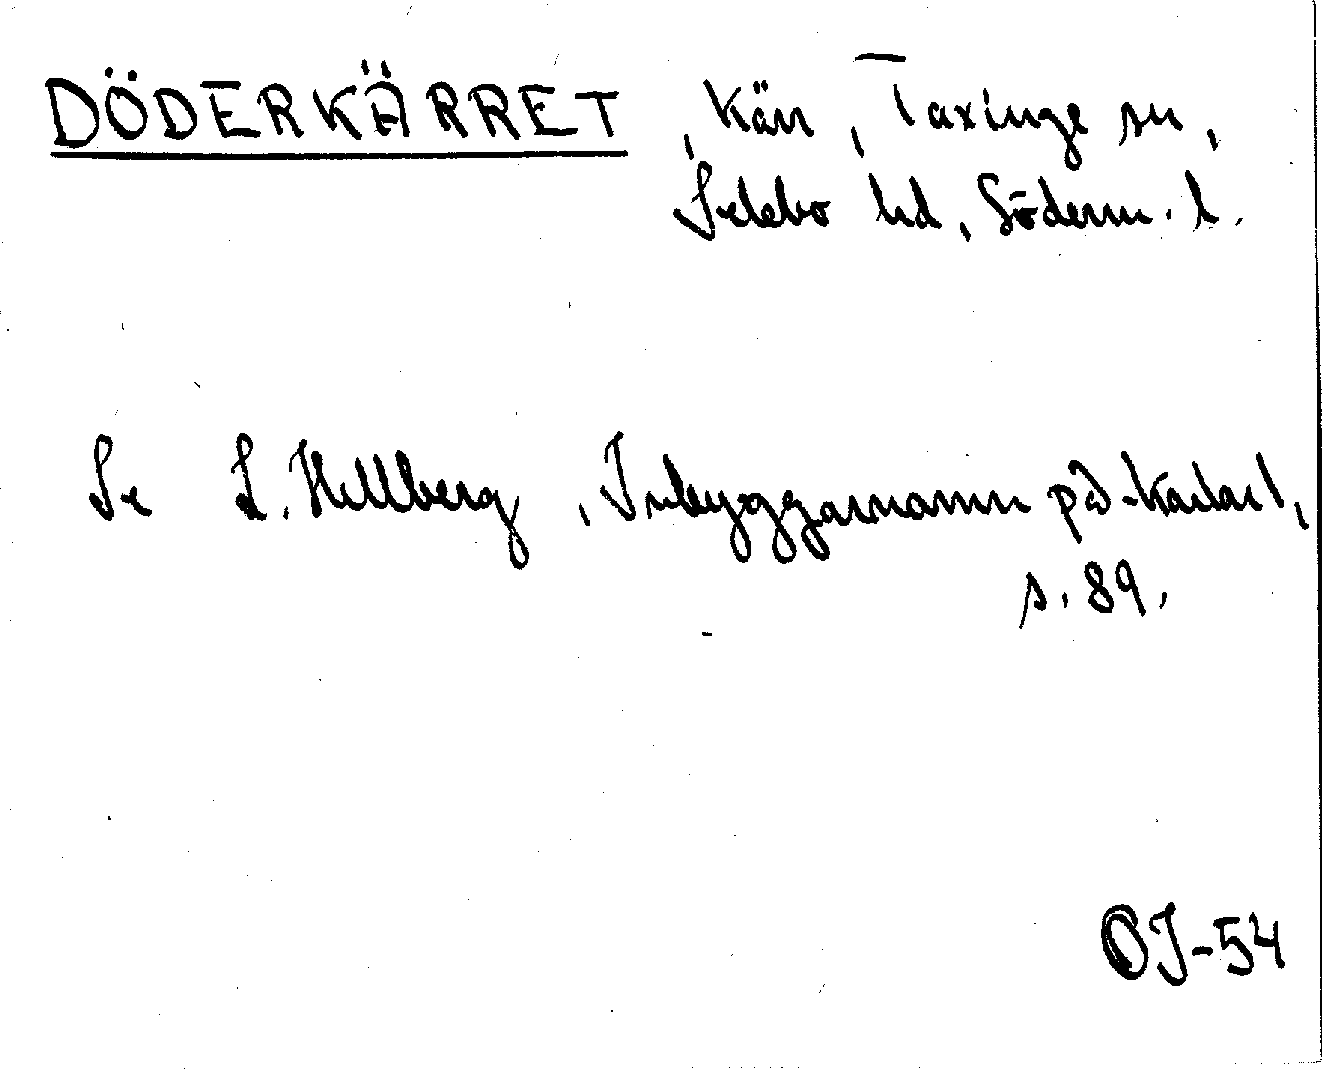 DÖDERKÄRRET, kärr, Taxinge sn,
Selebo hd, Söderm. l.
Se L. Hellberg, Inbyggarnamn på -karlar,
s. 89.
OJ-54